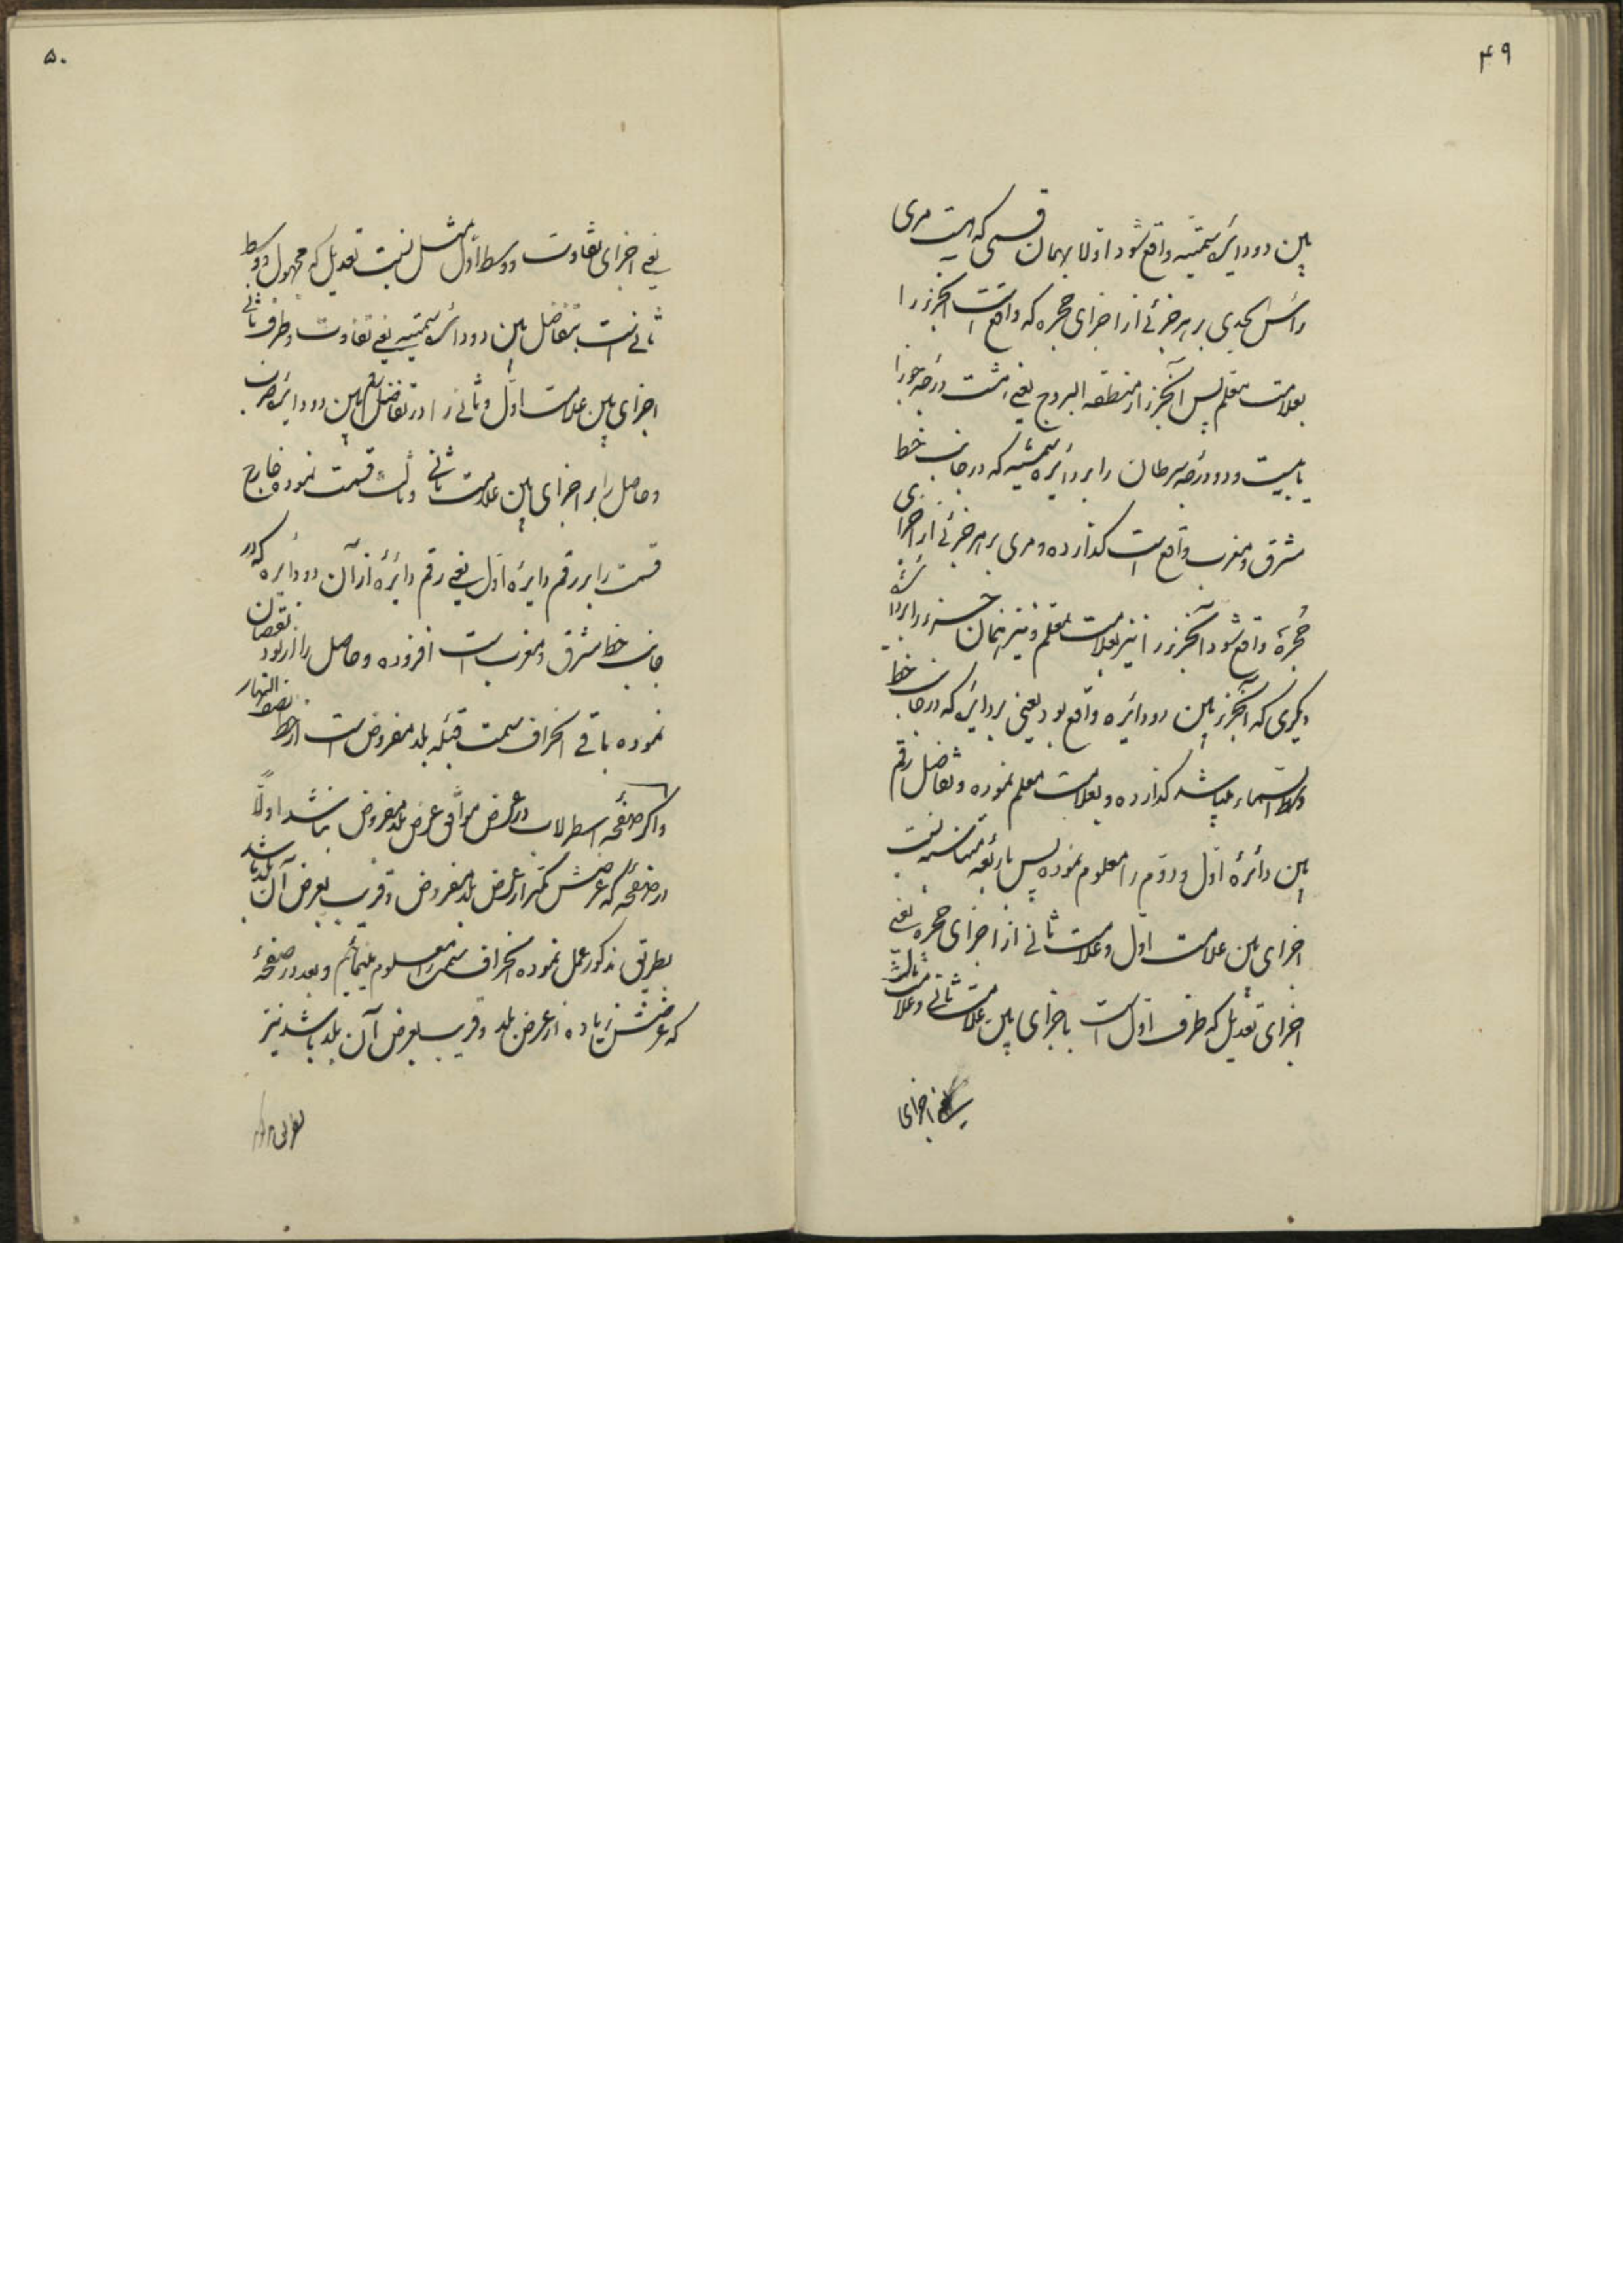 ۴۹
بین دو دایرۀ سمتیه واقع شود اولا بهمان قسمی که هست مری
رأس الجدی بر هر جزئی از اجزای حجره که واقع است آنجزء را
بعلامت معلم پس آنجزء از منطقه البروج یعنی هشت درجه جوزا
یا بیست و دو درجه سرطان را بر دایره سمتیه که در جانب خط
مشرق و مغرب واقع است کذارده و مری بر هر جزئی از اجزای
حجره واقع شود آنجزء را نیز بعلامت معلم و نیز همان جزء را بر دایره
دیکری که آنجزء بین دو دایره واقع بود یعنی بر دایرۀ که در جانب خط
وسط السماء میباشد کذارده و بعلامت معلم نموده و تفاضل رقم
بین دائرۀ اول و دوم را معلوم نموده پس باربعه متناسبه نسبت
اجزای بین علامت اول و علامت ثانی از اجزای حجره یعنی
اجزای تعدیل که طرف اول است باجزای بین علامت ثانی و علامت ثالث
یعنی اجزای
۵۰
یعنی اجزای تفاوت و وسط اول مثل نسبت تعدیل که مجهول و وسط
ثانی است بتفاضل بین دو دائرۀ سمتیه یعنی تفاوت و طرف ثانی
اجزای بین علامت اول و ثانی را در تفاضل رقم بین دو دایره ضرب
و حاصل را بر اجزای بین علامت ثانی و ثالث قسمت نموده خارج
قسمت را بر رقم دایرۀ اول یعنی رقم دایرۀ از آن دو دایره که در
جانب خط مشرق و مغرب است افزوده و حاصل را از نود نقصان
نموده باقی انحراف سمت قبله بلد مفروض است از خط نصف النهار
و اکر صفحۀ اسطرلاب در عرض موافق عرض بلد مفروض نباشد اولاً
در صفحۀ که عرضش کمتر از عرض بلد مفروض و قریب بعرض آن بلد باشد
بطریق مذکور عمل نموده انحراف سمت را معلوم مینمائیم و بعد در صفحۀ
که عرضش زیاده از عرض بلد و قریب بعرض آن بلد باشد نیز